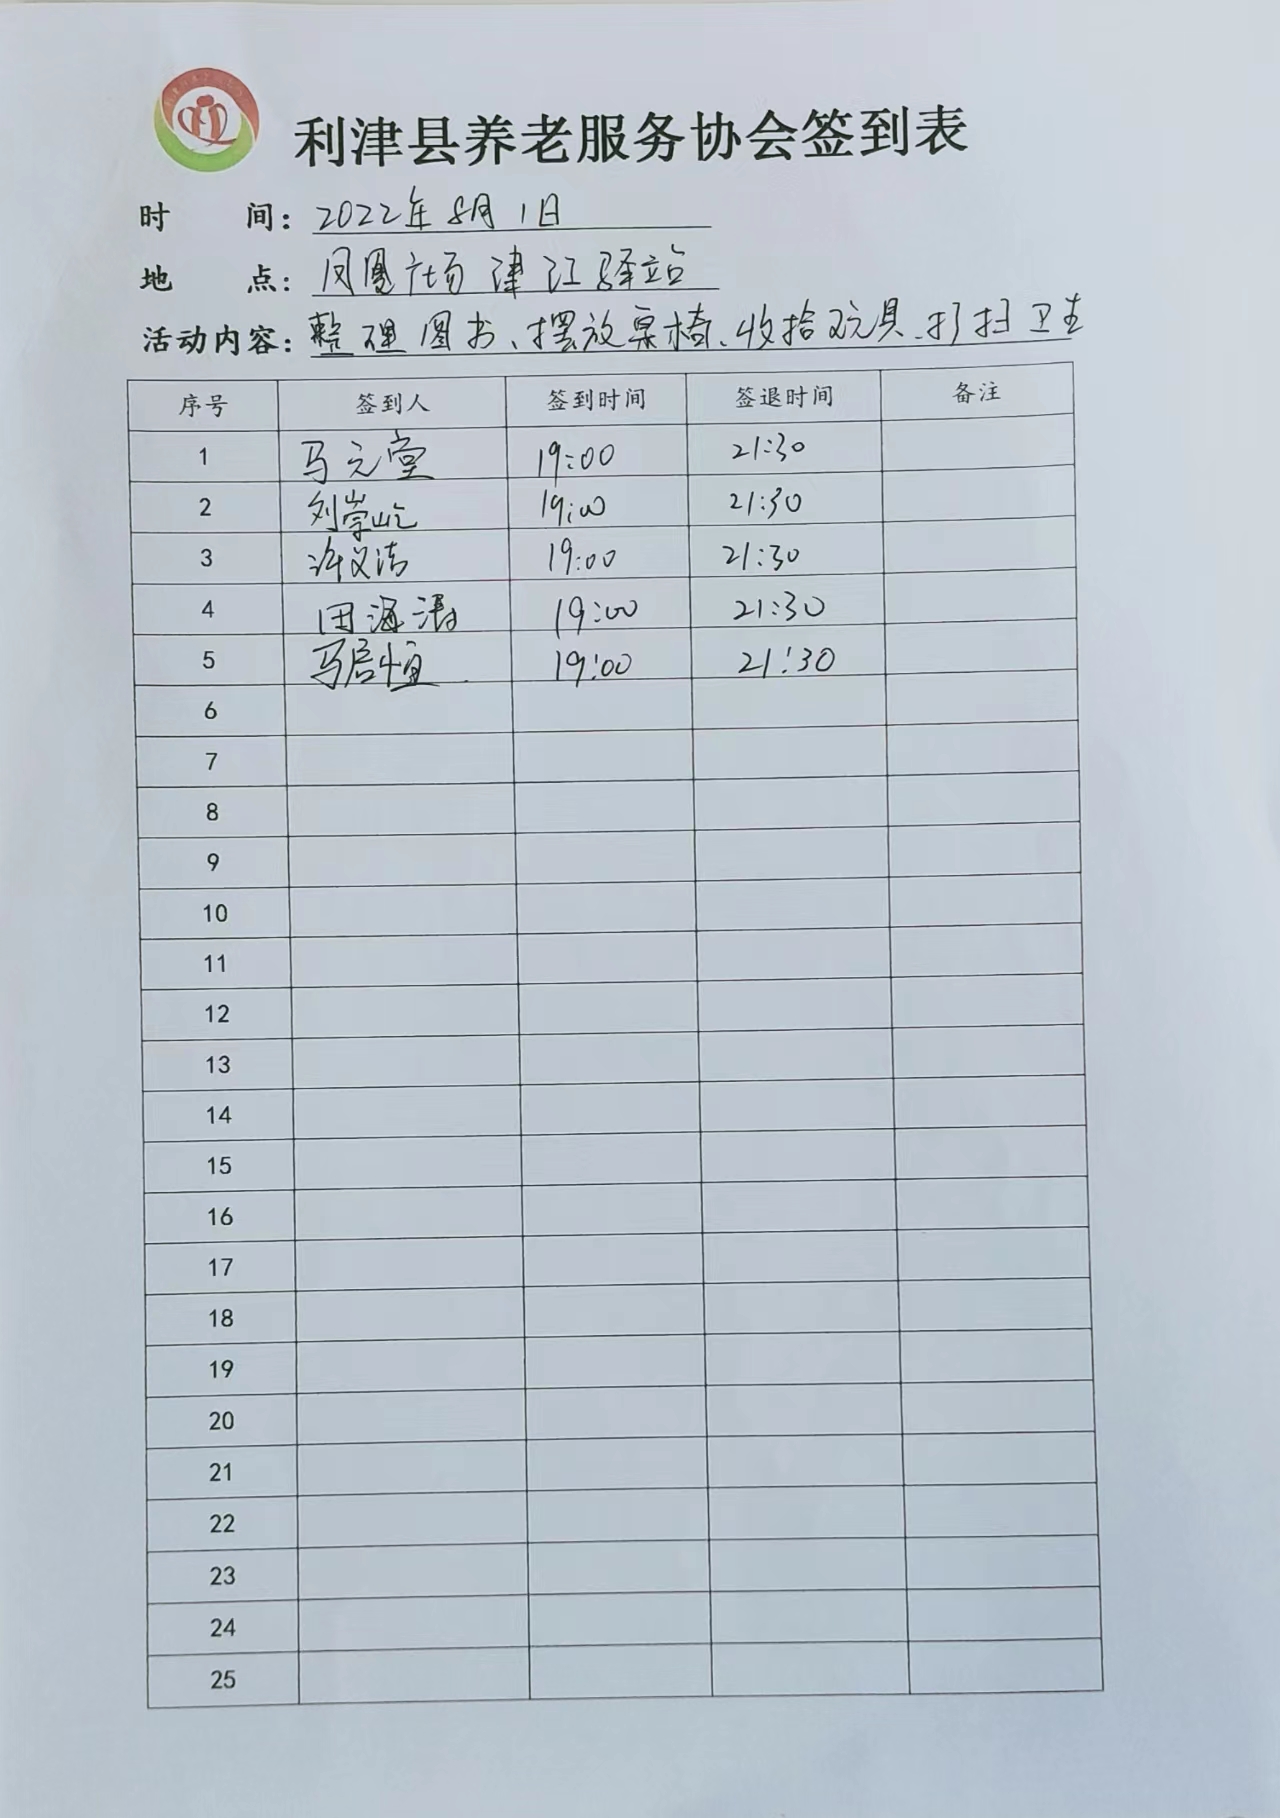 利津县养老服务协会签到表
时 间：2022年8月1日
地 点：凤凰广场津江驿站
活动内容：整理图书、摆放桌椅、收拾玩具、打扫卫生
序号 签到人 签到时间 签退时间 备注
1 马元堂 19:00 21:30
2 刘崇屹 19:00 21:30
3 许义洁 19:00 21:30
4 田海 19:00 21:30
5 马启恒 19:00 21:30
6
7
8
9
10
11
12
13
14
15
16
17
18
19
20
21
22
23
24
25